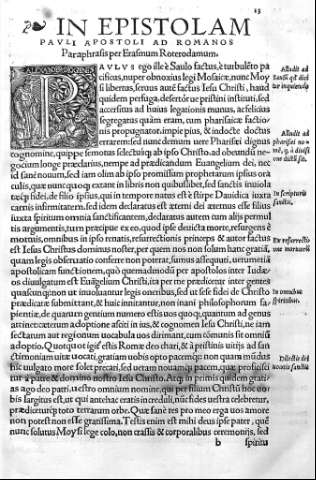 13
IN EPISTOLAM
PAVLI APOSTOLI AD ROMANOS
Paraphrasis per Erasmum Roterodamum.
PAVLVS ego ille è Saulo factus, è turbulēto pa
cificus, nuper obnoxius legi Mosaicæ, nunc Moy
si libertus, seruus autē factus Iesu Christi, haud
quidem perfuga, desertorúe pristini instituti, sed
accersitus ad huius legationis munus, ac felicius
segregatus quàm eram, cum pharisaicæ factio-
nis propugnator, impie pius, & indocte doctus
errarem: sed nunc demum uere Pharisei dignus
cognomine, quippe semotus selectusq́ ab ipso Christo, ad obeundū ne-
gocium longe præclarius, nempe ad prædicandum Euangelium dei, nec
id sanè nouum, sed iam olim ab ipso promissum prophetarum ipsius ora
culis, quæ nunc quoq; extant in libris non quibuslibet, sed sanctis, inuiola
tæq́ fidei, de filio ipsius, qui in tempore natus est è stirpe Dauidica iuxta
carnis infirmitatem, sed idem declaratus est æterni dei æternus esse filius
iuxta spiritum omnia sanctificantem, declaratus autem cum alijs permul
tis argumentis, tum præcipue ex eo, quod ipse deuicta morte, resurgens è
mortuis, omnibus in ipso renatis, resurrectionis princeps & autor factus
est Iesus Christus dominus noster, per quem nos non solum hanc gratiā,
quam legis obseruatio conferre non poterat, sumus assequuti, uerumetiā
apostolicam functionem, quò quemadmodū per apostolos inter Iudæ-
os diuulgatum est Euangelium Christi, ita per me prædicetur inter gentes
quasuis, non ut inuoluantur legis oneribus, sed ut sese fidei de Christo
prædicatæ submittant, & huic innitantur, non inani philosophorum sa-
pientiæ, de quarum gentium numero estis uos quoq;, quantum ad genus
attinet, cæterum adoptione asciti in ius, & cognomen Iesu Christi, ne iam
sectarum aut regionum uocabula uos dirimant, cum cōmunis sit omniū
adoptio. Quotquot igitur estis Romæ deo chari, & à pristinis uitijs ad san
ctimoniam uitæ uocati, gratiam uobis opto pacemq́; non quam mūdus
hic uulgato more solet precari, sed ueram nouamq́ pacem, quæ proficisci
tur à patre & domino nostro Iesu Christo. Atq; in primis quidem grati-
as ago deo patri, uestro omnium nomine, qui per filium Christū hoc uo-
bis largitus est, ut qui antehac eratis increduli, nūc fides uestra celebretur,
prædiceturq́; toto terrarum orbe. Quæ sanè res pro meo erga uos amore
non potest non esse gratissima. Testis enim est mihi deus ipse pater, quē
nunc solutus Moysi lege colo, non crassis & corporalibus ceremonijs, sed
b spiritus
Allusit ad
Allusit ad
pharisæi no
In scripturis
sanctis.
Ex resurrectio
ne mortuorū
In omnibus
gentibus.
Dilectis dei
uocatis sanctis